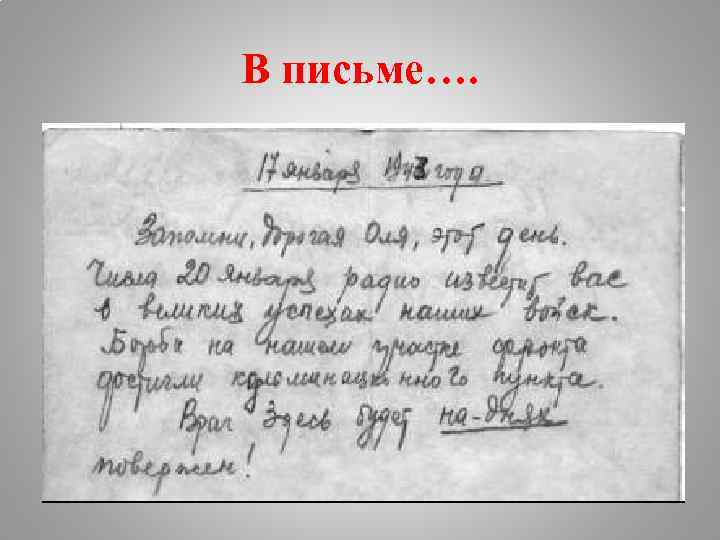 В письме….
17 января 1943 года
Запомни, дорогая Оля, этот день.
Числа 20 января радио известит вас
в великих успехах наших войск.
Борьба на нашем участке фронта
достигли пункта.
Враг здесь будет на-днях
повержен!